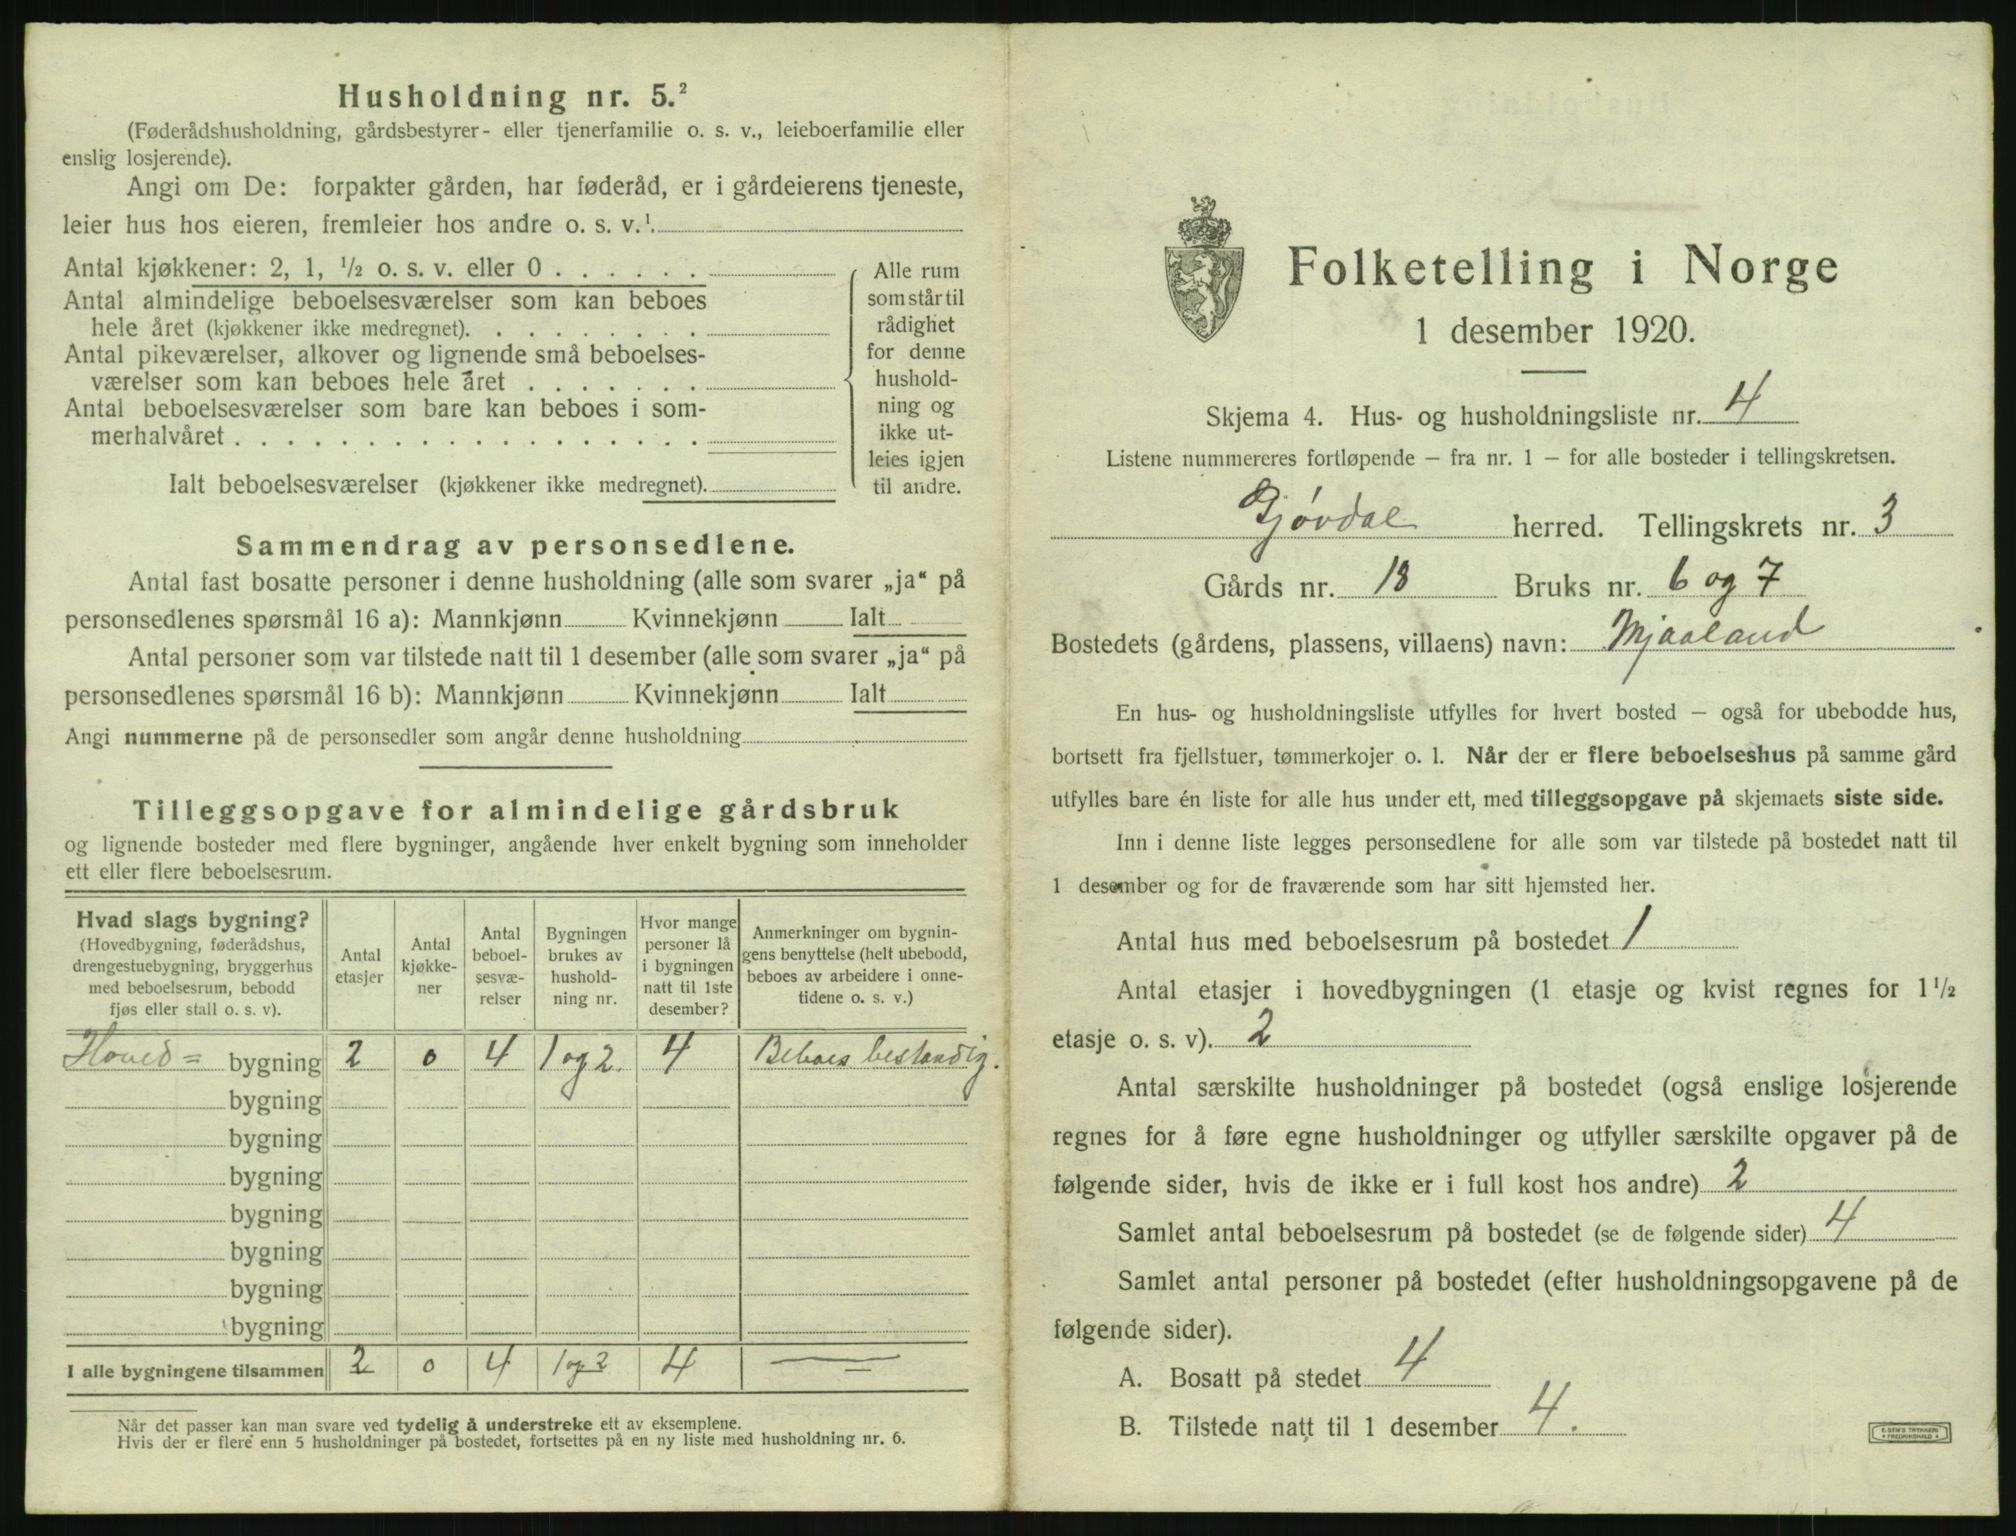 Husholdning nr. 5.²
(Føderådshusholdning, gårdsbestyrer- eller tjenerfamilie o. s. v., leieboerfamilie eller
enslig losjerende).
Angi om De: forpakter gården, har føderåd, er i gårdeierens tjeneste,
leier hus hos eieren, fremleier hos andre o. s. v.¹
Antal kjøkkener: 2, 1, ½ o. s. v. eller 0 . . . . . .
Antal almindelige beboelsesværelser som kan beboes
hele året (kjøkkener ikke medregnet). . . . . . . . .
Antal pikeværelser, alkover og lignende små beboelses-
værelser som kan beboes hele året . . . . . . .
Antal beboelsesværelser som bare kan beboes i som-
merhalvåret . . . . . . . . . . . . . . . . . .
Ialt beboelsesværelser (kjøkkener ikke medregnet).
Alle rum
som står til
rådighet
for denne
hushold-
ning og
ikke ut-
leies igjen
til andre.
Sammendrag av personsedlene.
Antal fast bosatte personer i denne husholdning (alle som svarer „ja“ på
personsedlenes spørsmål 16 a): Mannkjønn Kvinnekjønn Ialt
Antal personer som var tilstede natt til 1 desember (alle som svarer „ja“ på
personsedlenes spørsmål 16 b): Mannkjønn Kvinnekjønn Ialt
Angi nummerne på de personsedler som angår denne husholdning
Tilleggsopgave for almindelige gårdsbruk
og lignende bosteder med flere bygninger, angående hver enkelt bygning som inneholder
ett eller flere beboelsesrum.
Hvad slags bygning?
(Hovedbygning, føderådshus,
drengestuebygning, bryggerhus
med beboelsesrum, bebodd
fjøs eller stall o. s. v).
Antal
etasjer
Antal
kjøkke-
ner
Antal
beboel-
sesvæ-
relser
Bygningen
brukes av
hushold-
ning nr.
Hvor mange
personer lå
i bygningen
natt til 1ste
desember?
Anmerkninger om bygnin-
gens benyttelse (helt ubebodd,
beboes av arbeidere i onne-
tidene o. s. v.)
Hoved= bygning 2 0 4 1 og 2. 4 Beboes bestandig.
bygning
bygning
bygning
bygning
bygning
bygning
bygning
I alle bygningene tilsammen 2 0 4 1 og 2 4 —
Når det passer kan man svare ved tydelig å understreke ett av eksemplene.
Hvis der er flere enn 5 husholdninger på bostedet, fortsettes på en ny liste med husholdning nr. 6.
Folketelling i Norge
1 desember 1920.
Skjema 4. Hus- og husholdningsliste nr. 4
Listene nummereres fortløpende — fra nr. 1 — for alle bosteder i tellingskretsen.
Gjøvdal herred. Tellingskrets nr. 3
Gårds nr. 18 Bruks nr. 6 og 7
Bostedets (gårdens, plassens, villaens) navn: Mjaaland
En hus- og husholdningsliste utfylles for hvert bosted — også for ubebodde hus,
bortsett fra fjellstuer, tømmerkojer o. l. Når der er flere beboelseshus på samme gård
utfylles bare én liste for alle hus under ett, med tilleggsopgave på skjemaets siste side.
Inn i denne liste legges personsedlene for alle som var tilstede på bostedet natt til
1 desember og for de fraværende som har sitt hjemsted her.
Antal hus med beboelsesrum på bostedet 1
Antal etasjer i hovedbygningen (1 etasje og kvist regnes for 1½
etasje o. s. v). 2
Antal særskilte husholdninger på bostedet (også enslige losjerende
regnes for å føre egne husholdninger og utfyller særskilte opgaver på de
følgende sider, hvis de ikke er i full kost hos andre) 2
Samlet antal beboelsesrum på bostedet (se de følgende sider) 4
Samlet antal personer på bostedet (efter husholdningsopgavene på de
følgende sider).
A. Bosatt på stedet 4
B. Tilstede natt til 1 desember 4.